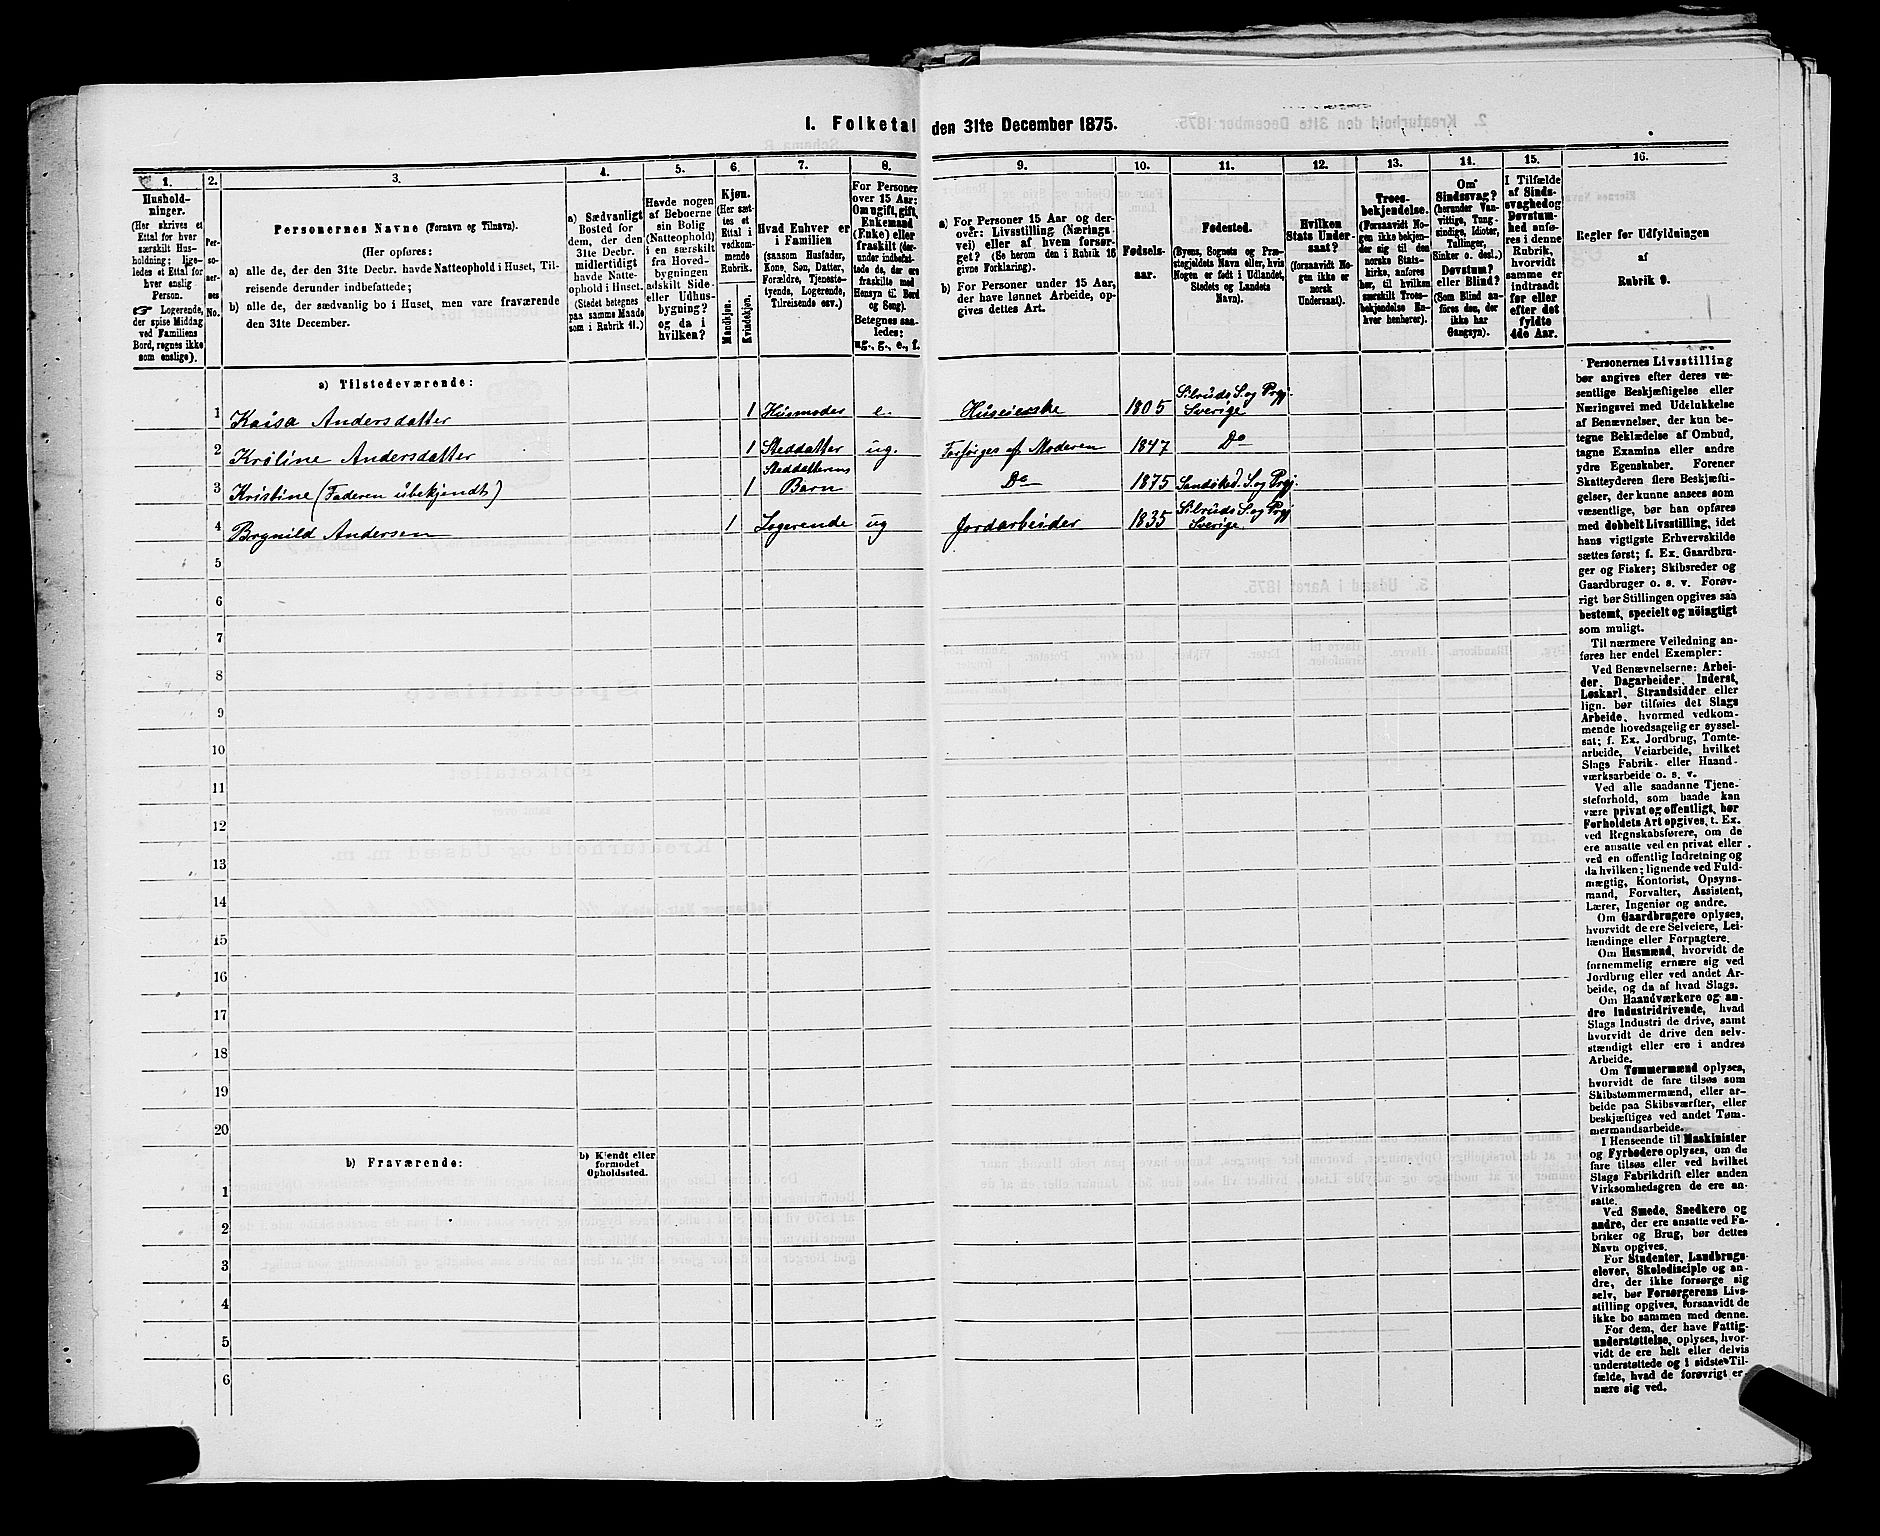 1. Folketal den 31te December 1875.
1. 2. 3. 4. 5. 6. 7. 8. 9. 10. 11. 12. 13. 14. 15. 16.
Hushold-
ninger.
(Her skrives et
Ettal for hver
særskilt Hus-
holdning; lige-
ledes et Ettal for
hver enslig
Person.
☞ Logerende,
der spise Middag
ved Familiens
Bord, regnes ikke
som enslige).
Per-
so-
ner-
nes
No.
Personernes Navne (Fornavn og Tilnavn).
(Her opføres:
a) alle de, der den 31te Decbr. havde Natteophold i Huset, Til-
reisende derunder indbefattede;
b) alle de, der sædvanlig bo i Huset, men vare fraværende
den 31te December.
a) Sædvanligt
Bosted for
dem, der den
31te Decbr.
midlertidigt
havde Natte-
ophold i Huset.
(Stedet betegnes
paa samme Maade
som i Rubrik 11.)
Havde nogen
af Beboerne
sin Bolig
(Natteophold)
i en særskilt
fra Hoved-
bygningen
adskilt Side-
eller Udhus-
bygning?
og da i
hvilken?
Kjøn.
(Her sæt-
tes et
Ettal i
vedkom-
mende
Rubrik.
Mandkjøn.
Kvindekjøn.
Hvad Enhver er
i Familien
(saasom Husfader,
Kone, Søn, Datter,
Forældre, Tjeneste-
tyende, Logerende,
Tilreisende osv.)
For Personer
over 15 Aar:
Om ugift, gift,
Enkemand
(Enke) eller
fraskilt (der-
under indbefat-
tede de, der ere
fraskilte med
Hensyn til Bord
og Seng).
Betegnes saa-
ledes:
ug., g., e., f.
a) For Personer 15 Aar og der-
over: Livsstilling (Nærings-
vei) eller af hvem forsør-
get? (Se herom den i Rubrik 16
givne Forklaring).
b) For Personer under 15 Aar,
der have lønnet Arbeide, op-
gives dettes Art.
Fødsels-
aar.
Fødested.
(Byens, Sognets og Præ-
stegjeldets Navn eller, hvis
Nogen er født i Udlandet,
Stedets og Landets
Navn).
Hvilken
Stats Under-
saat?
(forsaavidt No-
gen ikke er
norsk
Undersaat).
Troes-
bekjendelse.
(Forsaavidt No-
gen ikke bekjen-
der sig til den
norske Stats-
kirke, anføres
her, til hvilken
særskilt Troes-
bekjendelse En-
hver henhører).
Om
Sindssvag?
(herunder Van-
vittige, Tung-
sindige, Idioter,
Tullinger,
Sinker o. desl.)
Døvstum?
eller Blind?
(Som Blind an-
føres den, der
ikke har
Gangsyn).
I Tilfælde
af Sinds-
svaghed og
Døvstum-
hed anfø-
res i denne
Rubrik,
hvorvidt
samme er
indtraadt
før eller
efter det
fyldte
4de Aar.
Regler for Udfyldningen
af
Rubrik 9.
a) Tilstedeværende:
1 Kaisa Andersdatter 1 Husmoder e. Huseierske 1805 Silruds S. og Prgj. Sverige
2 Kroline Andersdatter 1 Steddatter ug. Forsørges af Moderen 1847 Do
3 Kristine (Faderen ubekjendt) 1 Steddatterens Barn Do 1875 S. og Prgj.
4 Andersen 1 Logerende ug Jordarbeider 1835 Silruds S. og Prgj Sverige
5
6
7
8
9
10
11
12
13
14
15
16
17
18
19
20
b) Fraværende:
b) Kjendt eller
formodet
Opholdssted.
1
2
3
4
5
6
Personernes Livsstilling
bør angives efter deres væ-
sentlige Beskjæftigelse eller
Næringsvei med Udelukkelse
af Benævnelser, der kun be-
tegne Beklædelse af Ombud,
tagne Examina eller andre
ydre Egenskaber. Forener
Skatteyderen flere Beskjæfti-
gelser, der kunne ansees som
væsentlige, bør han opføres
med dobbelt Livsstilling, idet
hans vigtigste Erhvervskilde
sættes først; f. Ex. Gaardbru-
ger og Fisker; Skibsreder og
Gaardbruger o. s. v. Forøv-
rigt bør Stillingen opgives saa
bestemt, specielt og nöiagtigt
som muligt.
Til nærmere Veiledning an-
føres her endel Exempler:
Ved Benævnelserne: Arbei-
der, Dagarbeider, Inderst,
Løskarl, Strandsidder eller
lign. bør tilføies det Slags
Arbeide, hvormed vedkom-
mende hovedsagelig er syssel-
sat; f. Ex. Jordbrug, Tomte-
arbeide, Veiarbeide, hvilket
Slags Fabrik- eller Haand-
værksarbeide o. s. v.
Ved alle saadanne Tjene-
steforhold, som baade kan
være privat og offentligt, bør
Forholdets Art opgives, t. Ex.
ved Regnskabsførere, om de
ere ansatte ved en privat eller
ved en offentlig Indretning og
da hvilken; lignende ved Fuld-
mægtig, Kontorist, Opsyns-
mand, Forvalter, Assistent,
Lærer, Ingeniør og andre.
Om Gaardbrugere oplyses,
hvorvidt de ere Selveiere, Lei-
lændinge eller Forpagtere.
Om Husmænd, hvorvidt de
fornemmelig ernære sig ved
Jordbrug eller ved andet Ar-
beide, og da af hvad Slags.
Om Haandværkere og an-
dre Industridrivende, hvad
Slags Industri de drive, samt
hvorvidt de drive den selv-
stændigt eller ere i andres
Arbeide.
Om Tømmermænd oplyses,
hvorvidt de fare tilsøs som
Skibstømmermænd, eller ar-
beide paa Skibsværfter, eller
beskjæftiges ved andet Tøm-
mermandsarbeide.
I Henseende til Maskinister
og Fyrbødere oplyses, om de
fare tilsøs eller ved hvilket
Slags Fabrikdrift eller anden
Virksomhedsgren de ere an-
satte.
Ved Smede, Snedkere og
andre, der ere ansatte ved Fa-
briker og Brug, bør dettes
Navn opgives.
For Studenter, Landbrugs-
elever, Skoledisciple og an-
dre, der ikke forsørge sig
selv, bør Forsørgerens Livs-
stilling opgives, forsaavidt de
ikke bo sammen med denne.
For dem, der have Fattig-
understøttelse, oplyses, hvor-
vidt de ere helt eller delvis
understøttede og i sidste Til-
fælde, hvad de forøvrigt er-
nære sig ved.